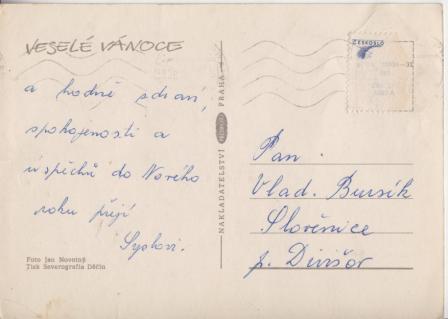 VESELÉ VÁNOCE
a hodně zdraví,
spokojenosti a
úspěchů do Nového
roku přejí
Syslovi.
Foto Jan Novotný
Tisk Severografia Děčín
NAKLADATELSTVÍ
PRAHA
ČESKOSLO
Pan
Vlad. Bursík
Slověnice
p. Divišov